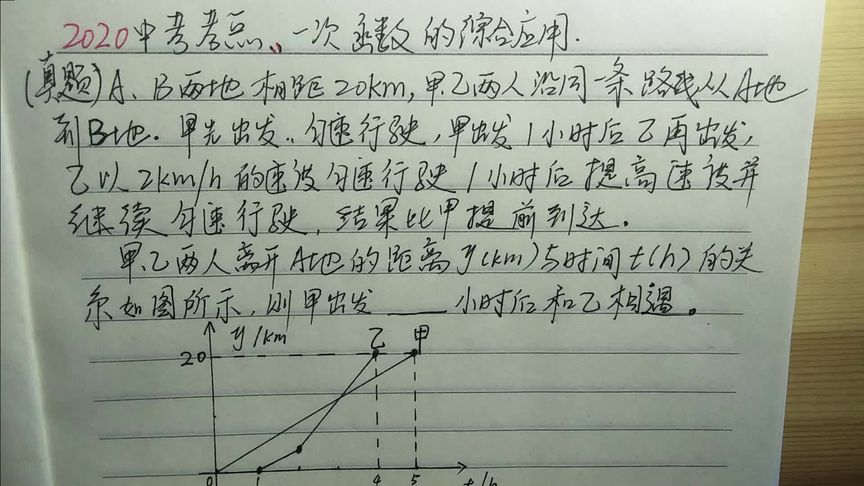 2020中考考点、一次函数的综合应用.
(真题)A、B两地相距20km,甲.乙两人沿同一条路线从A地
到B地.甲先出发..匀速行驶,甲出发1小时后乙再出发,
乙以2km/h的速度匀速行驶1小时后提高速度并
继续匀速行驶,结果比甲提前到达。
甲.乙两人离开A地的距离y(km)与时间t(h)的关
系如图所示,则甲出发____小时后和乙相遇。
y/km
20 乙 甲
0 1 4 5 t/h